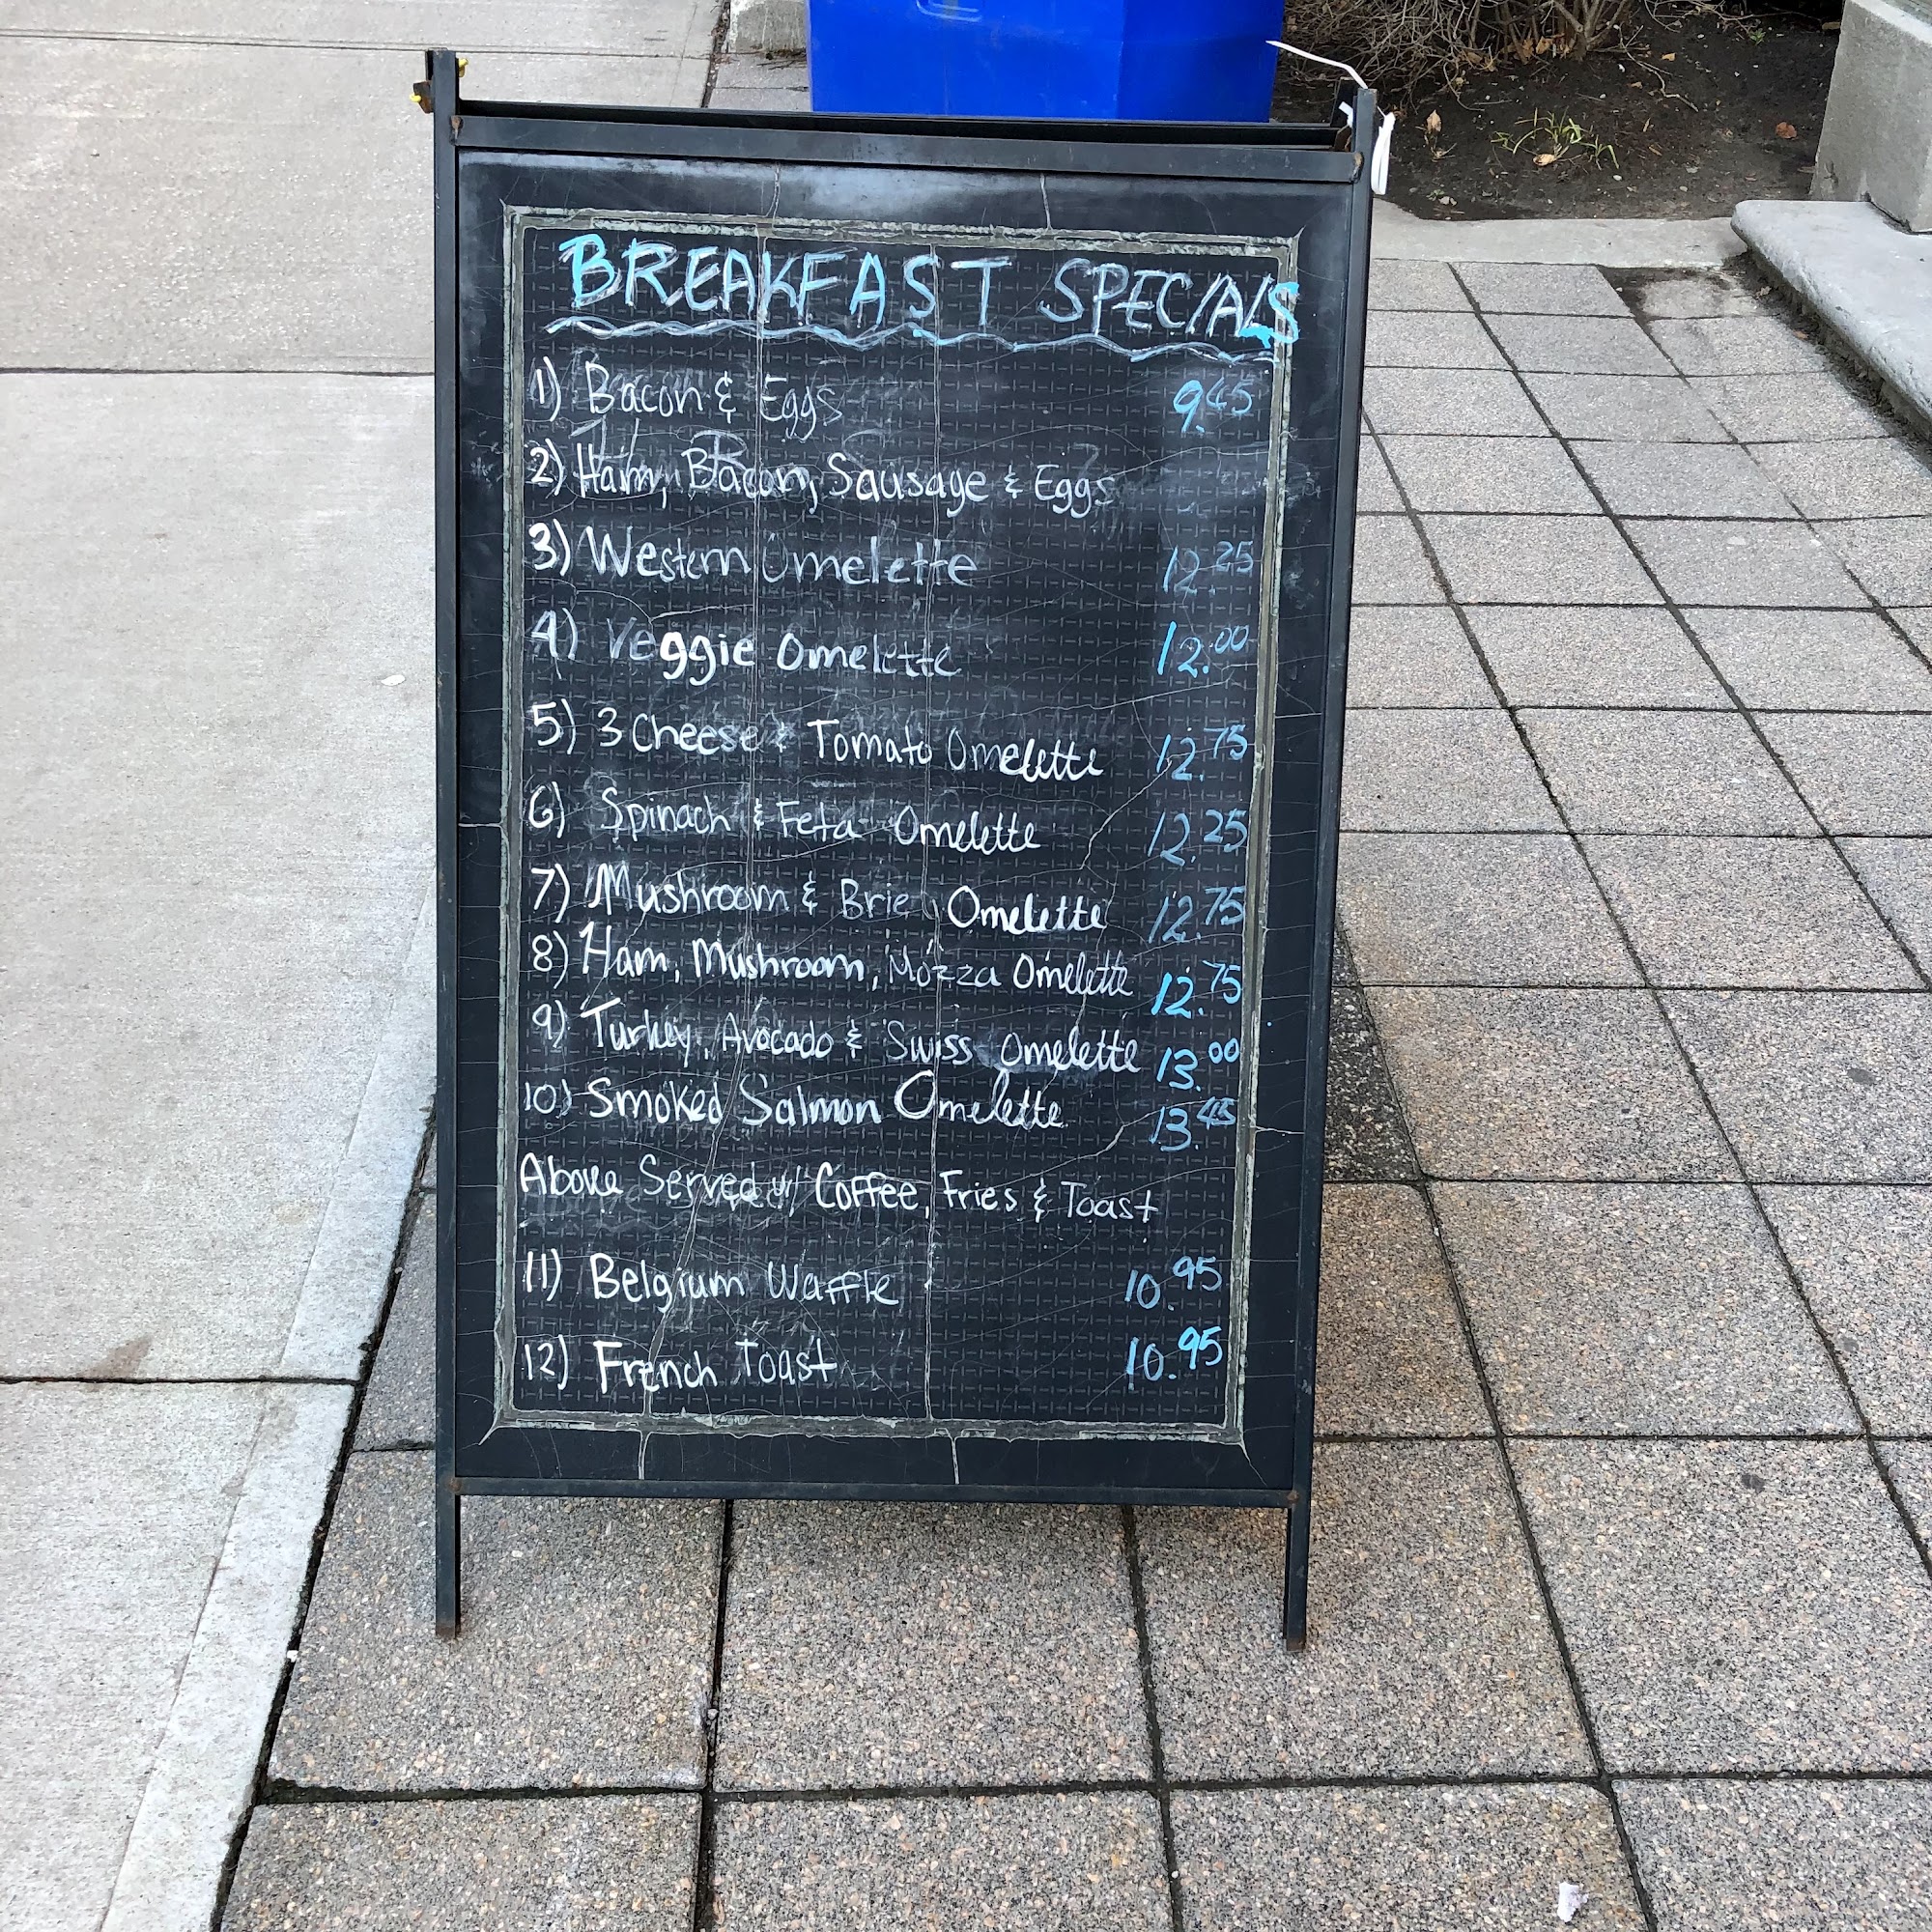 BREAKFAST SPECIALS
1) Bacon & Eggs 9.45
2) Ham, Bacon, Sausage & Eggs
3) Western Omelette 12.25
4) Veggie Omelette 12.00
5) 3 Cheese & Tomato Omelette 12.75
6) Spinach & Feta Omelette 12.25
7) Mushroom & Brie Omelette 12.75
8) Ham, Mushroom, Mozza Omelette 12.75
9) Turkey, Avocado & Swiss Omelette 13.00
10) Smoked Salmon Omelette 13.45
Above Served w/ Coffee, Fries & Toast
11) Belgium Waffle 10.95
12) French Toast 10.95